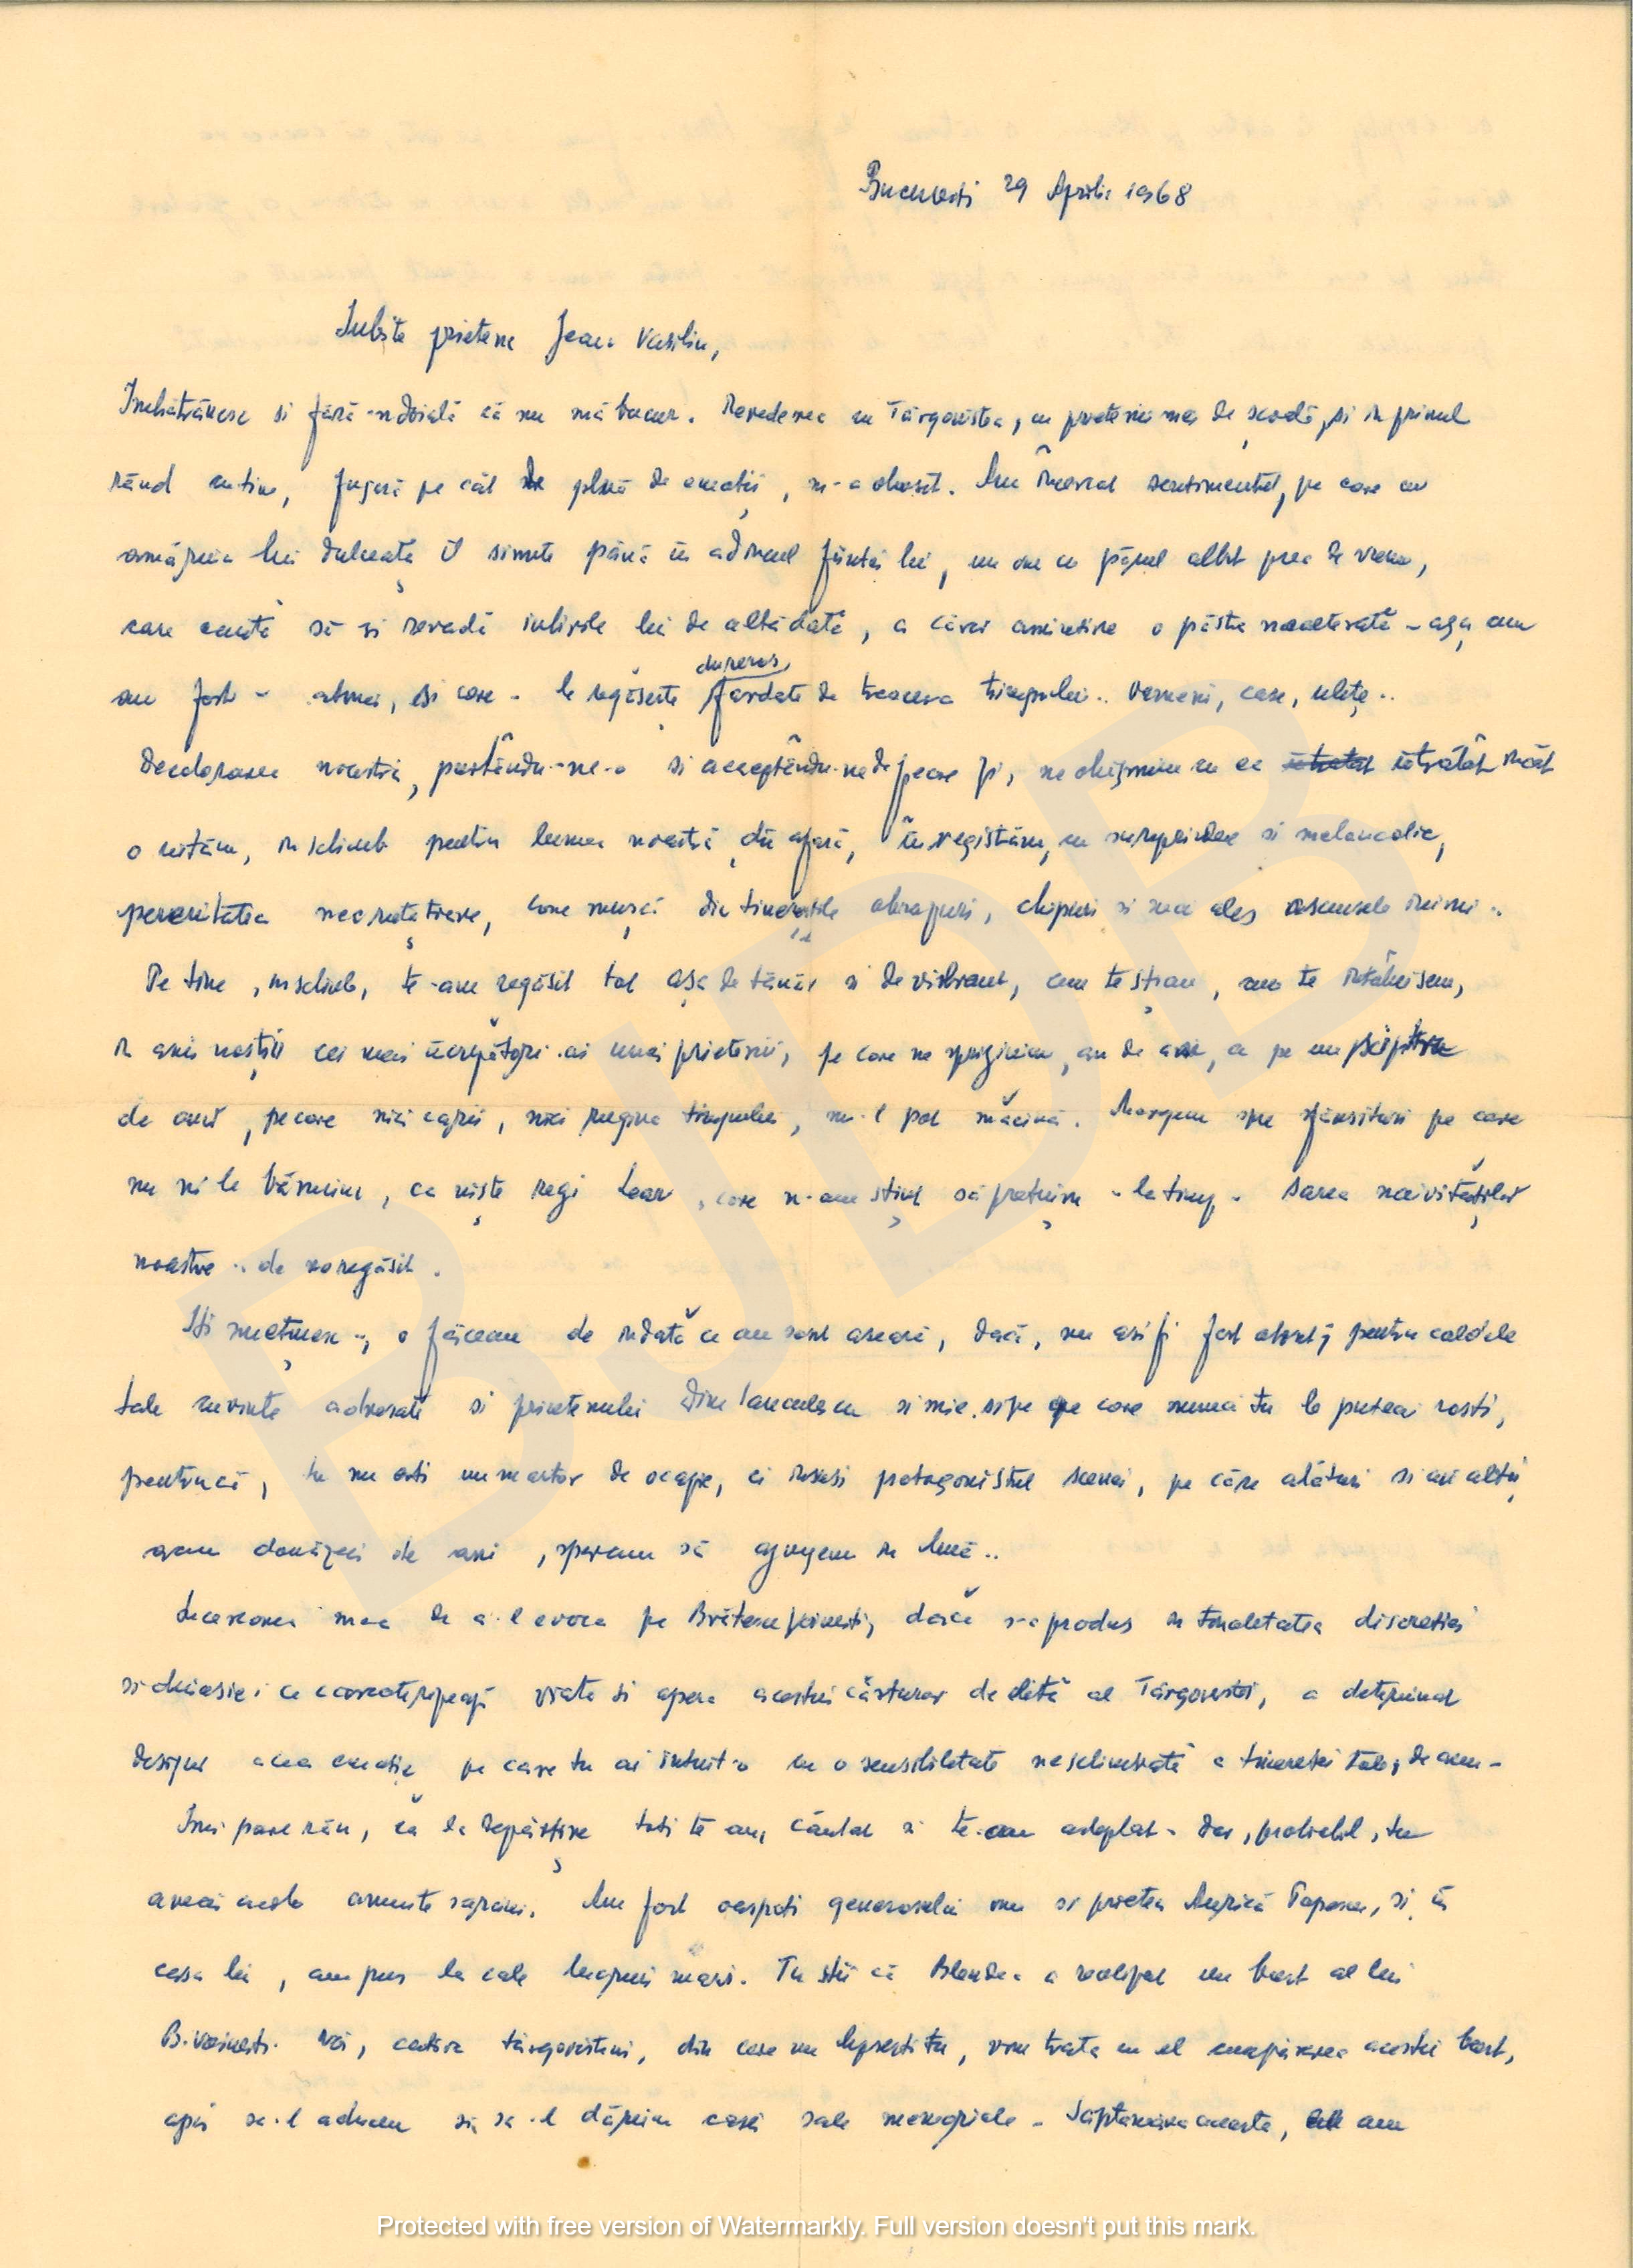 București 29 Aprilie 1968
Iubite prietene Jean Vasiliu,
Imbătrânesc si fără-ndoială că nu mă bucur. Revederea cu Târgoviștea, cu prietenii mei de școală, si in primul
rând cu tine, fugară pe cât de plină de emoții, m-a obosit. Am încercat sentimentul, pe care cu
amăruia lui dulceață îl simte până în adâncul ființei lui, un om cu părul albit prea de vreme,
care caută să-si revadă iubirile lui de altădată, a căror amintire o păstra nealterată - așa cum
au fost - atunci, si care - le regăsește dureros fardate de trecerea timpului.. Oameni, case, ulițe..
Decolorarea noastră, purtându-ne-o si acceptându-ne de fiecare zi, ne obișnuim cu ea întratât încât
o uităm, in schimb pentru lumea noastră din afară, înregistrăm, cu surprindere si melancolie,
perenitatea necruțătoare, care mușcă din tinerețile obrazuri, chipuri si mai ales ascunsele inimi..
Pe tine, inschimb, te-am regăsit tot așa de tânăr si de vibrant, cum te știam, cum te întâlnisem,
in anii noștri cei mai încrezători ai unei prietenii, pe care ne sprijinim, an de an, ca pe un sceptru
de aur, pe care nici carii, nici rugina timpului, nu-l pot măcina. Mergem spre sfârsituri pe care
nu ni le bănuim, ca niște regi Lear, care n-am știut să prețuim - la timp - sarea naivităților
noastre .. de neregăsit.
Iti mulțumesc .., o făceam de indată ce am sosit aseară, dacă, nu asi fi fost obosit, pentru caldele
tale cuvinte adresate si prietenului Dinu Ianculescu si mie, si pe care numai tu le puteai rosti,
pentrucă, tu nu esti un martor de ocazie, ci insusi protagonistul scenei, pe care alături si cu alții,
acum douăzeci de ani, speram să ajungem in lună..
Incercarea mea de a-l evoca pe Brătescu Voinesti, dacă s-a produs in tonalitatea discreției
si duioșiei ce caracterizează viața si opera acestui cărturar de elită al Târgoviștei, a determinat
desigur acea emoție pe care tu ai intuit-o cu o sensibilitate neschimbată a tinereței tale, de acum -
Imi pare rău, că la despărțire toti te-am căutat si te-am asteptat - Dar, probabil, tu
aveai acolo anumite sarcini. Am fost oaspeti generosului om si prieten Aurică Popescu, si în
casa lui, am pus la cale lucruri mari. Tu știi că Blendea a realizat un bust al lui
B. Voinesti. Noi, cativa târgovisteni, din care nu lipsesti tu, vom trata cu el cumpărarea acestui bust,
apoi sa-l aducem si sa-l dăruim casei sale memoriale - Săptămâna aceasta, am
Protected with free version of Watermarkly. Full version doesn't put this mark.
BJDB